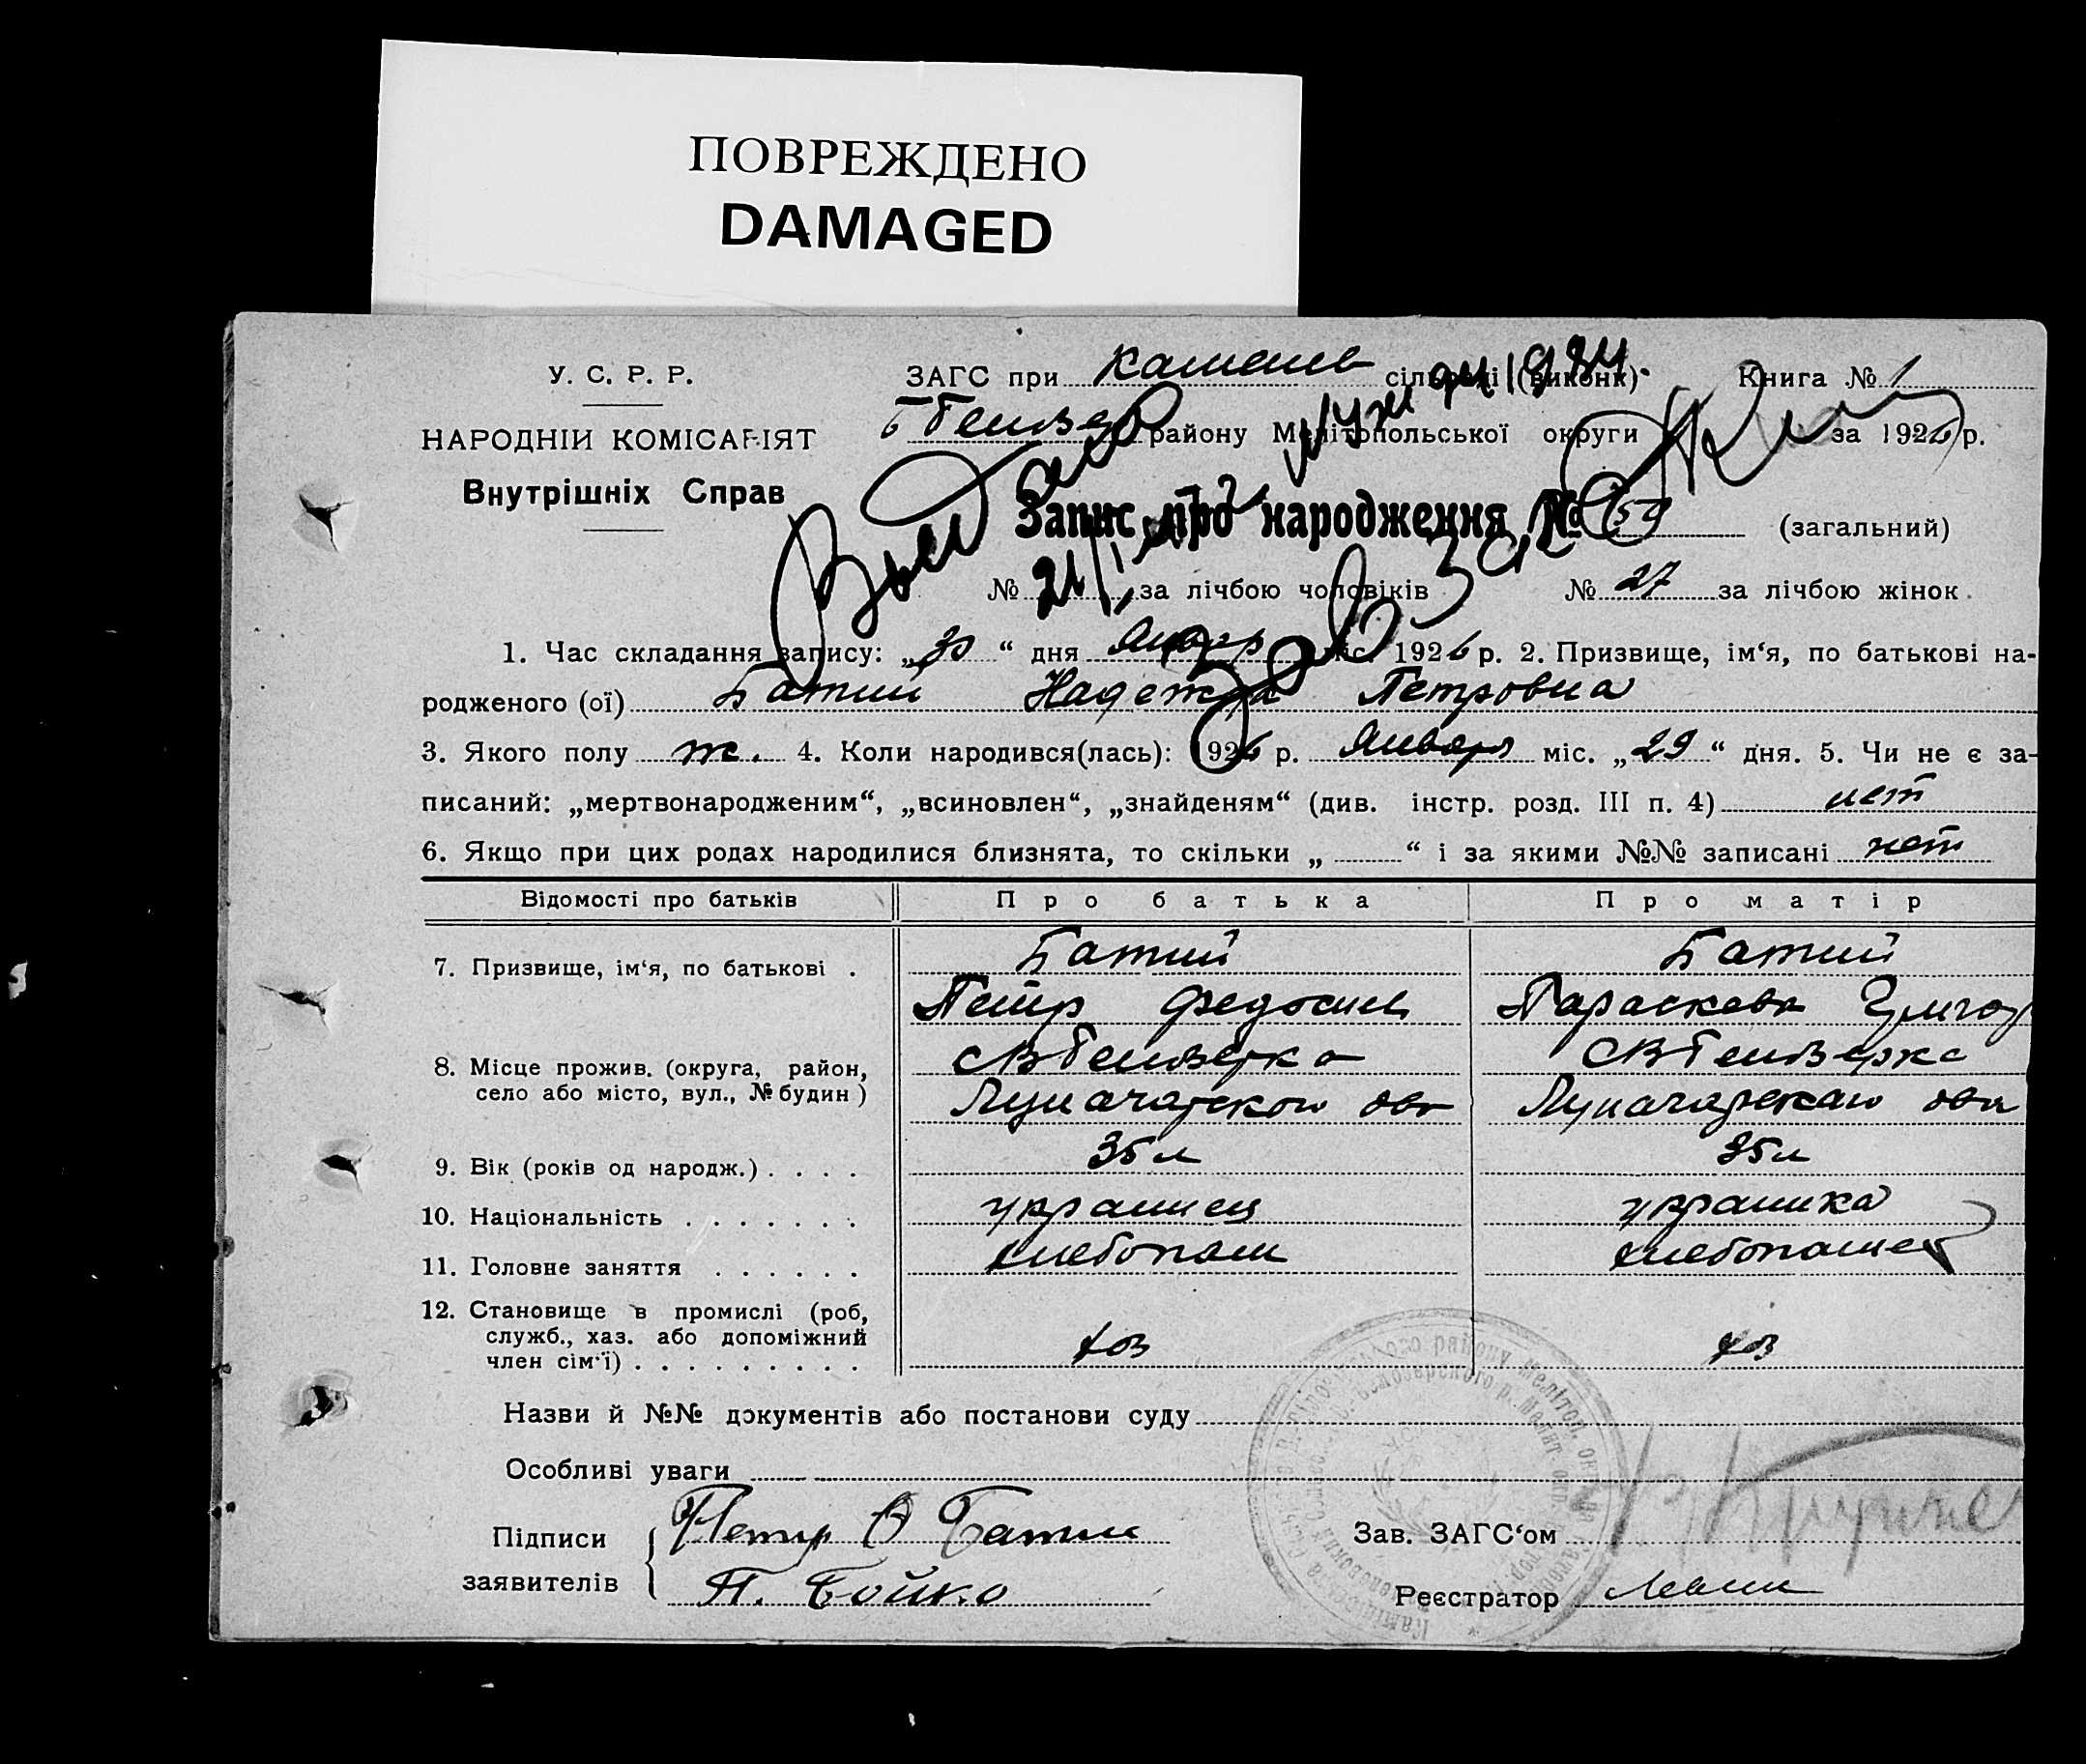 ПОВРЕЖДЕНО
DAMAGED
У. С. Р. Р.
НАРОДНІЙ КОМІСАРІЯТ
Внутрішніх Справ
ЗАГС при Каменев сільраді (виконк). Книга № 1
району Мелітопольської округи за 1926 р.
Запис про народження № 59 (загальний)
№ за лічбою чоловіків № 27 за лічбою жінок
1. Час складання запису: „30“ дня Январ міс. 1926 р. 2. Призвище, ім‘я, по батькові на-
родженого (ої) Батий Надежда Петровна
3. Якого полу ж. 4. Коли народився(лась): 1926 р. Января міс. „29“ дня. 5. Чи не є за-
писаний: „мертвонародженим“, „всиновлен“, „знайденям“ (див. інстр. розд. III п. 4) нет
6. Якщо при цих родах народилися близнята, то скільки „ “ і за якими №№ записані нет
Відомості про батьків Про батька Про матір
7. Призвище, ім‘я, по батькові . Батий Батий
Петр Федосиев Параскева
8. Місце прожив. (округа, район,
село або місто, вул., № будин)
9. Вік (років од народж.) . . . . 35 л 35 л
10. Національність . . . . . . . украинец украинка
11. Головне заняття . . . . . . хлебопаш хлебопашец
12. Становище в промислі (роб,
служб., хаз. або допоміжний
член сім‘ї) . . . . . . . . . хоз хоз
Назви й №№ документів або постанови суду
Особливі уваги
Підписи Петр Батий Зав. ЗАГС‘ом
заявителів П. Бойко Реєстратор